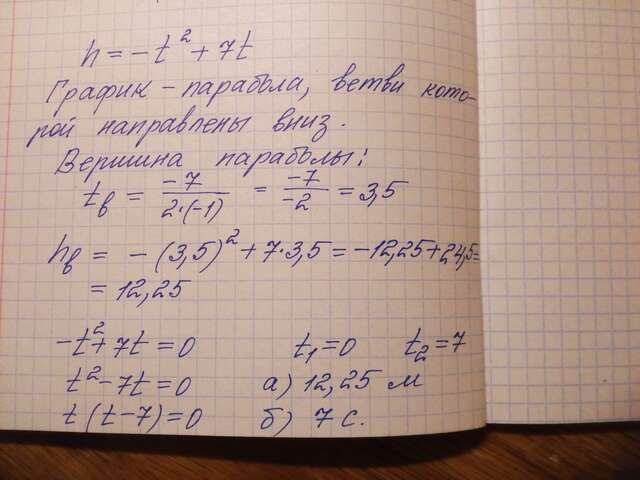 h = -t² + 7t
График - парабола, ветви кото-
рой направлены вниз.
Вершина параболы:
tв = -7/2·(-1) = -7/-2 = 3,5
hв = -(3,5)² + 7·3,5 = -12,25 + 24,5 =
= 12,25
-t² + 7t = 0 t₁ = 0 t₂ = 7
t² - 7t = 0 а) 12,25 м
t(t - 7) = 0 б) 7 с.